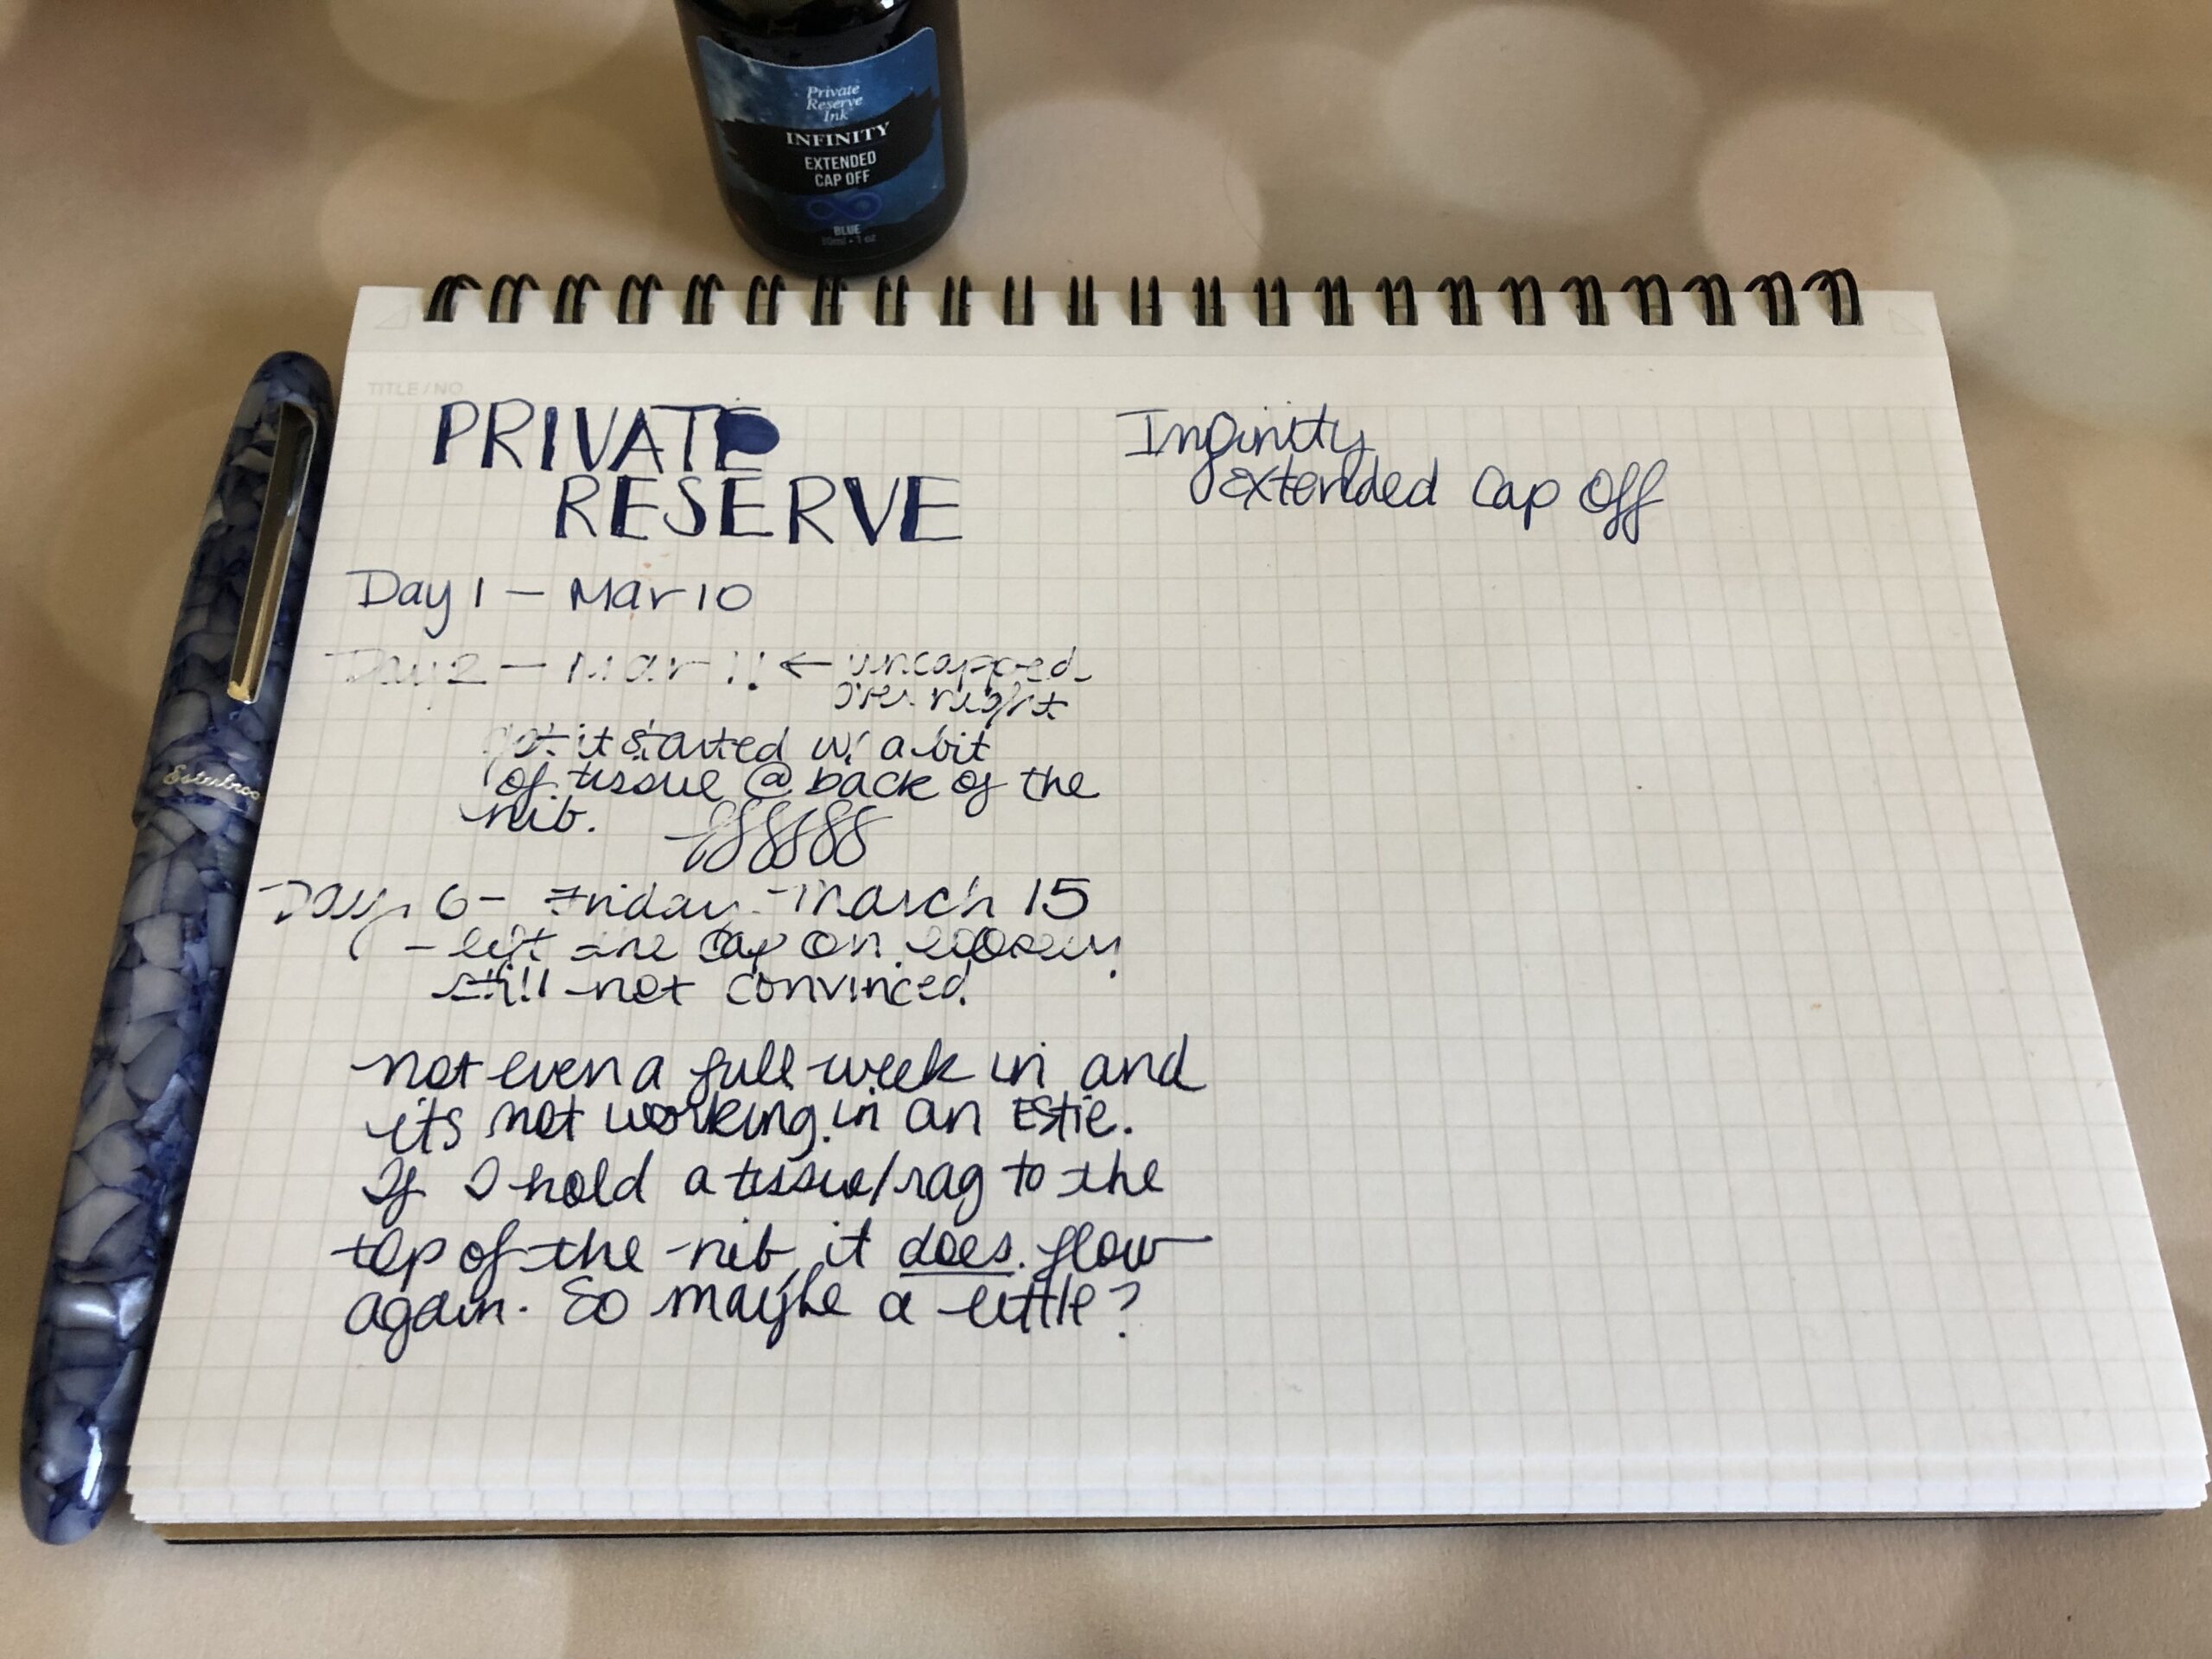 Private
Reserve
Ink
INFINITY
EXTENDED
CAP OFF
BLUE
30ml • 1 oz
TITLE / NO.
PRIVATE
RESERVE
Infinity
Extended Cap Off
Day 1 – Mar 10
Day 2 – Mar 11 ← uncapped
over night
got it started w/ a bit
of tissue @ back of the
nib.
Day 6 – Friday – March 15
– left the cap on loosely
still not convinced.
not even a full week in and
its not working in an Estie.
If I hold a tissue/rag to the
top of the nib it does flow
again. So maybe a little?
Esterbroo